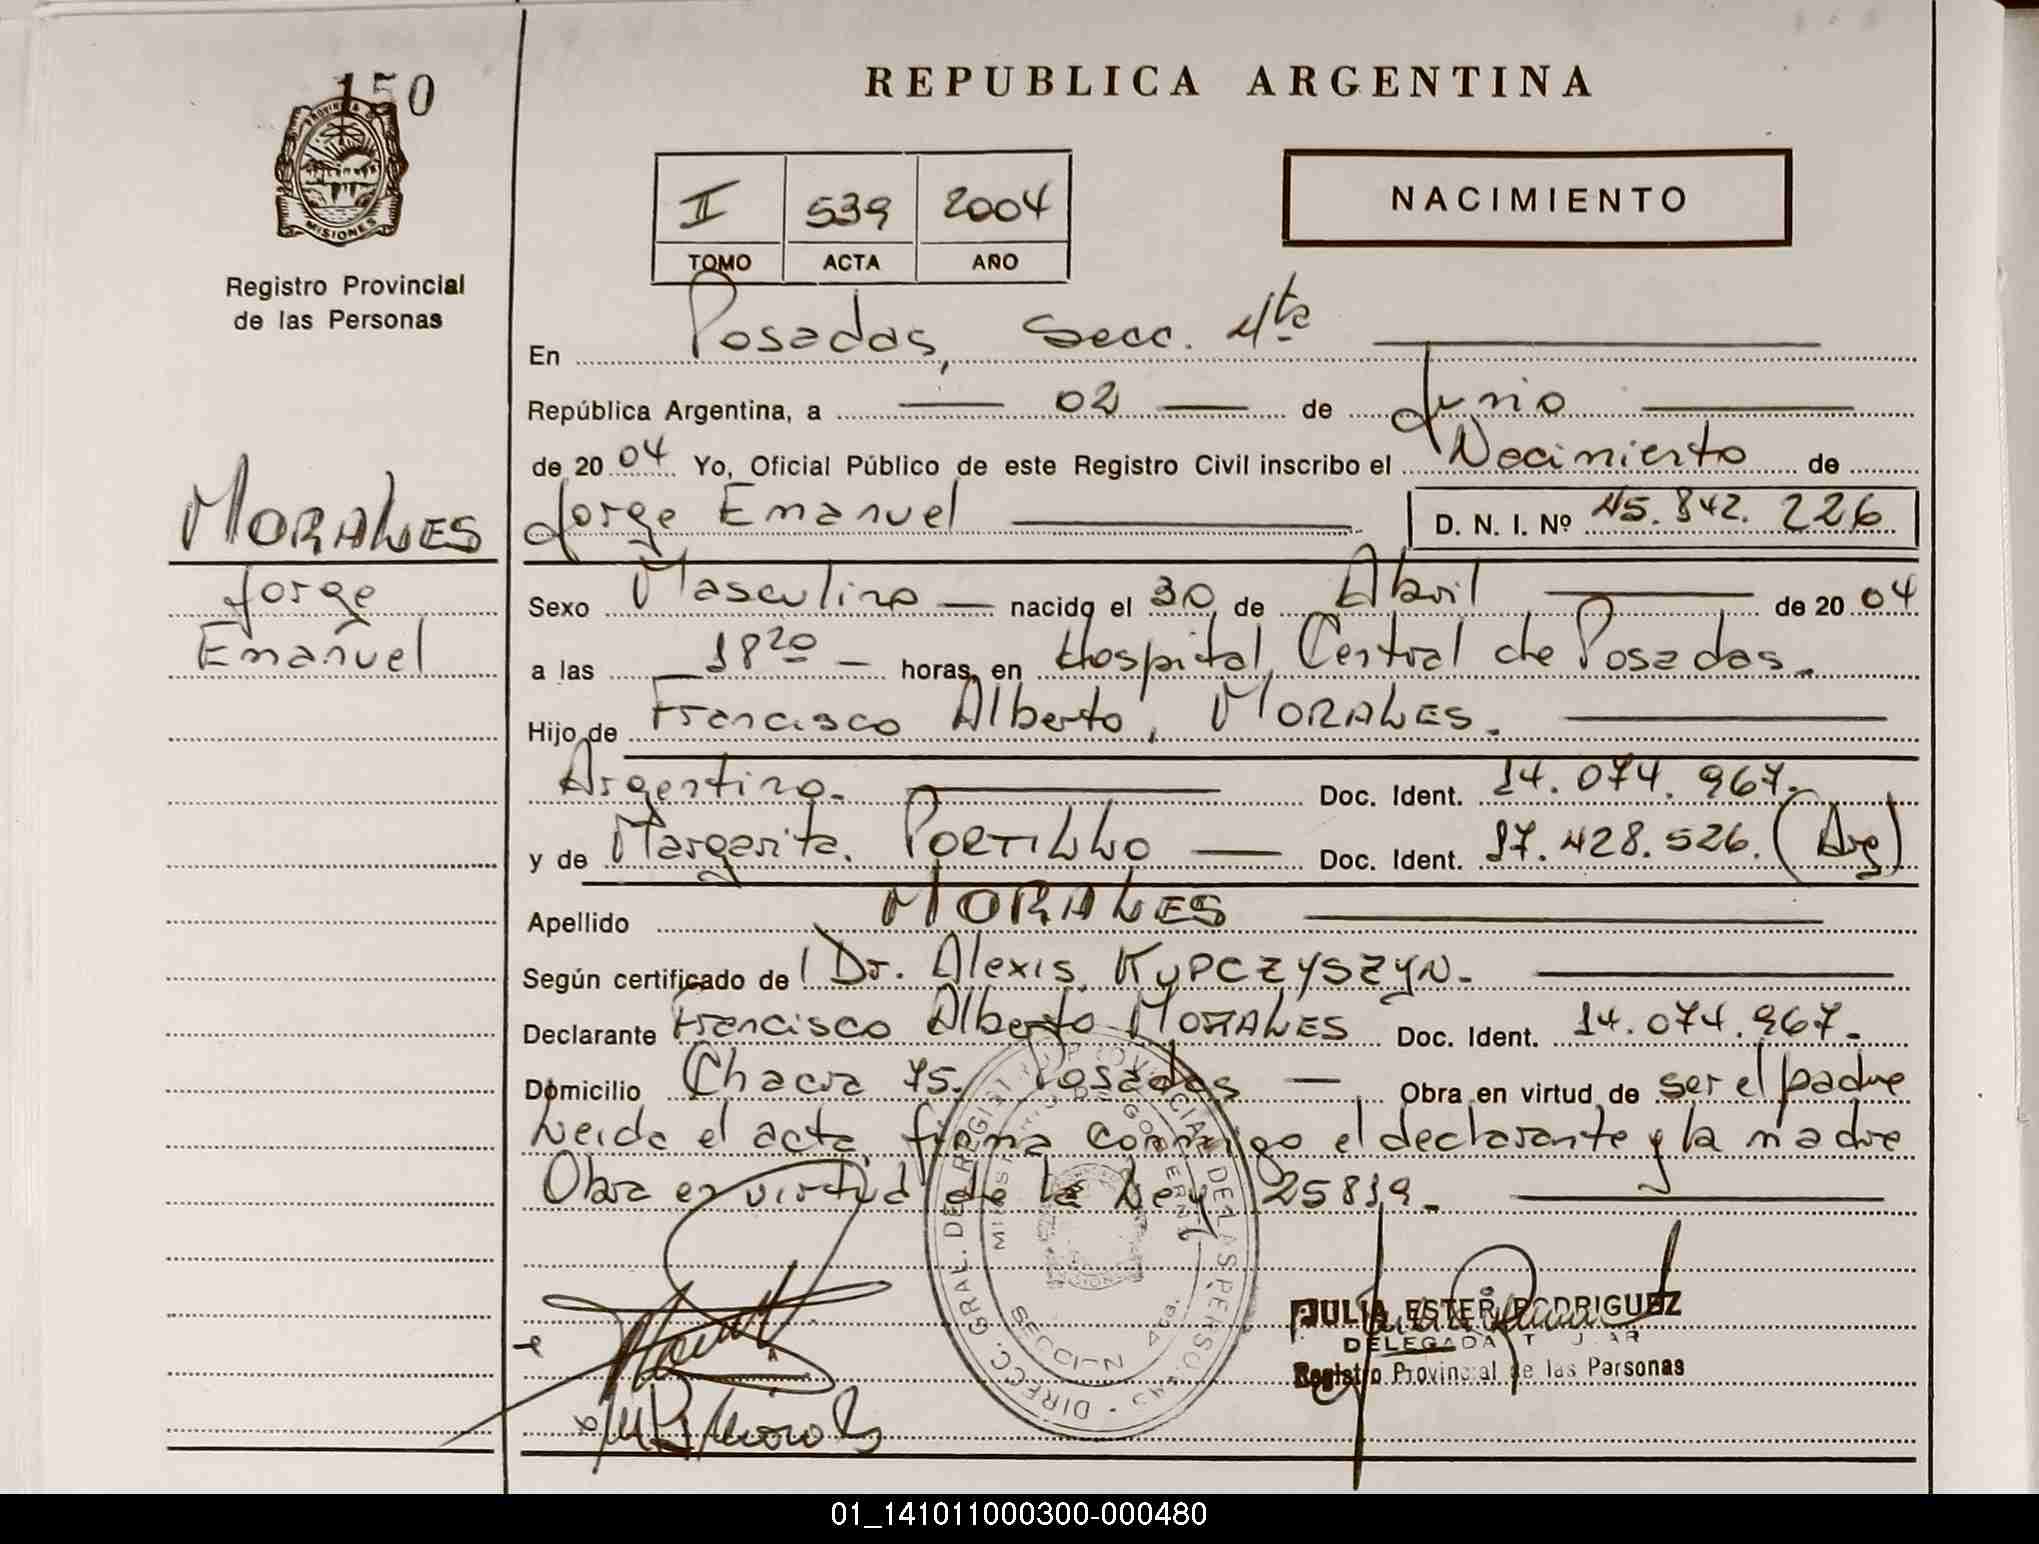 150
PROVINCIA DE
MISIONES
Registro Provincial
de las Personas
MORALES
Jorge
Emanuel
REPUBLICA ARGENTINA
II 539 2004
TOMO ACTA AÑO
NACIMIENTO
En Posadas, Secc. 4ta
República Argentina, a 02 de Junio
de 20 04 Yo, Oficial Público de este Registro Civil inscribo el Nacimiento de
Jorge Emanuel D. N. I. Nº 45.842.226
Sexo Masculino nacido el 30 de Abril de 20 04
a las 18 20 horas, en Hospital Central de Posadas.
Hijo de Francisco Alberto, MORALES.
Argentino. Doc. Ident. 14.074.967.
y de Margarita. PORTILLO Doc. Ident. 17.428.526. (Arg)
Apellido MORALES
Según certificado de Dr. Alexis KUPCZYSZYN.
Declarante Francisco Alberto MORALES Doc. Ident. 14.074.967.
Domicilio Chacra 75. Posadas Obra en virtud de ser el padre
Leida el acta, firma conmigo el declarante y la madre
Obra en virtud de la Ley 25819.
DIRECC. GRAL. DEL REGISTRO PROVINCIAL DE LAS PERSONAS
JULIA ESTER RODRIGUEZ
DELEGADA TITULAR
Registro Provincial de las Personas
01_141011000300-000480